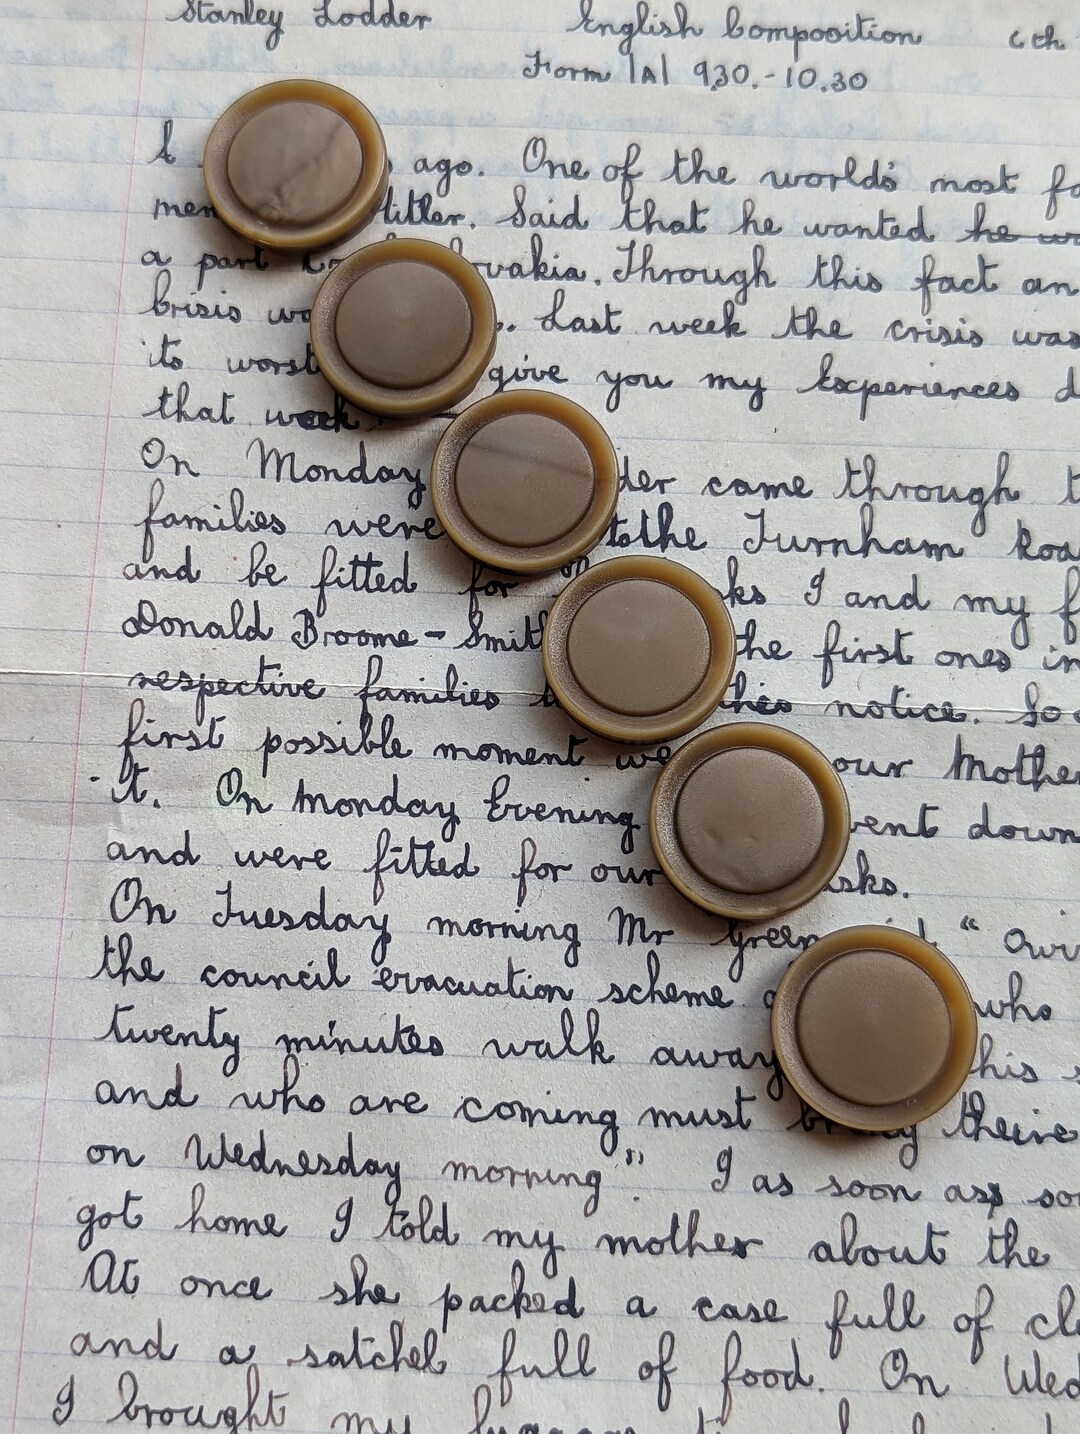 Stanley Lodder English Composition 6th
Form 1A1 9.30.-10.30
ago. One of the world's most
men Hitler. Said that he wanted he
a part vakia. Through this fact an
Crisis Last week the crisis was
its worst give you my Experiences
that week
On Monday der came through
families were to the Turnham Road
and be fitted for ks I and my
Donald Broome - Smith the first ones in
respective families this notice. So
first possible moment we our Mother
it. On Monday Evening went down
and were fitted for our sks.
On Tuesday morning Mr Green "Owi
the council evacuation scheme who
twenty minutes walk away his
and who are coming must bring theire
on Wednesday morning". I as soon as
got home I told my mother about the
At once she packed a case full of cl
and a satchel full of food. On Wed
I brought my luggage